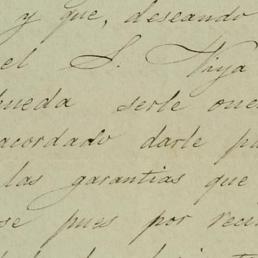 y que, deseando
el S. Viya
pueda serle one
acordado darle pa
las garantias que
se pues por reci